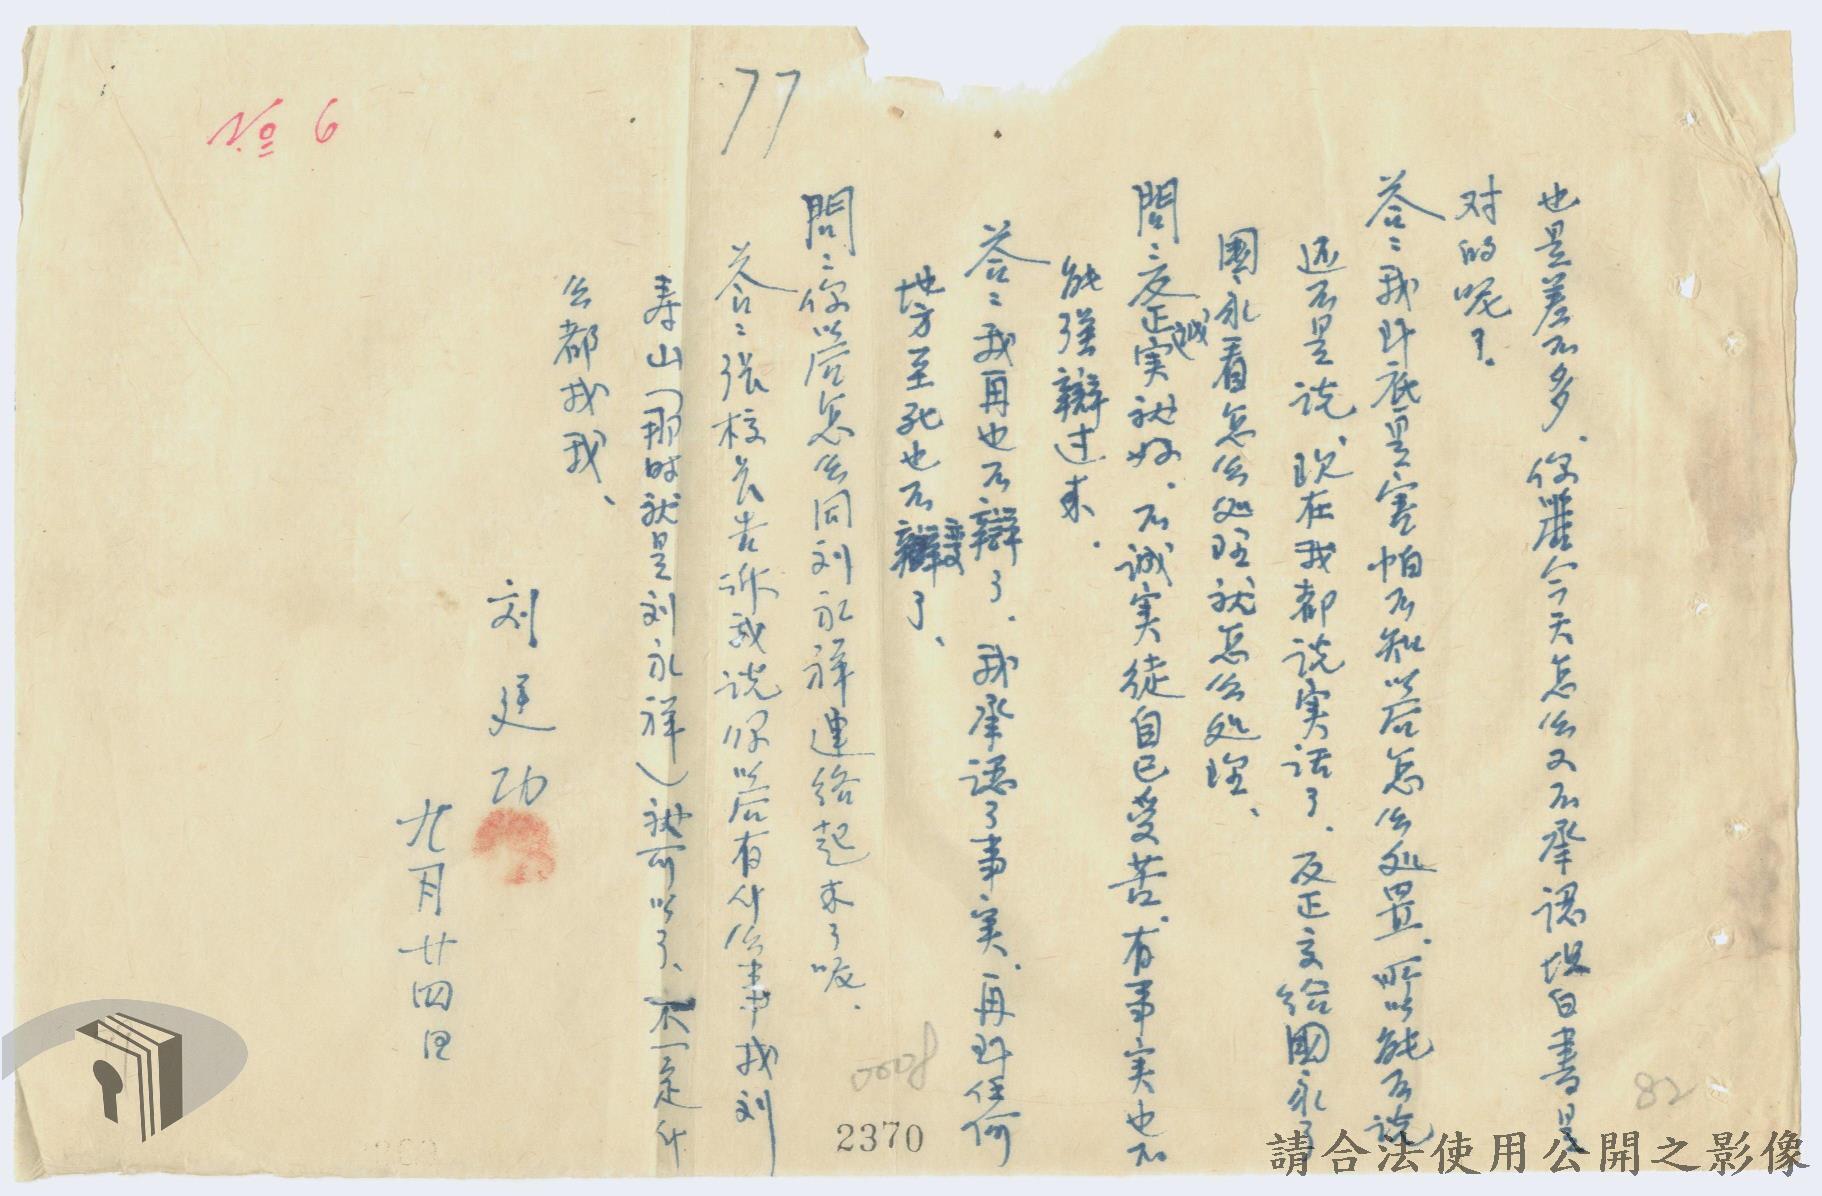 № 6
77
也是差不多、你誰今天怎么又不承認坦白書是
对的呢了.
答:我到底是害怕不知以后怎么处置,所以能不说
还不是说,现在我都说实话了.反正交给国家了
国家看怎么处理就怎么处理、
問:反正诚实就好.不诚实徒自己受苦.有事实也不
能强辯过来.
答:我再也不辯了.我承認了事实,再到任何
地方至死也不變了、
問:你以后怎么同刘永祥連絡起来了呢.
答:張校长告诉我说你以后有什么事找刘
寿山(那时就是刘永祥)就可以了、不一定什
么都找我、
刘廷功
九月廿四日
0008
2370
82
請合法使用公開之影像